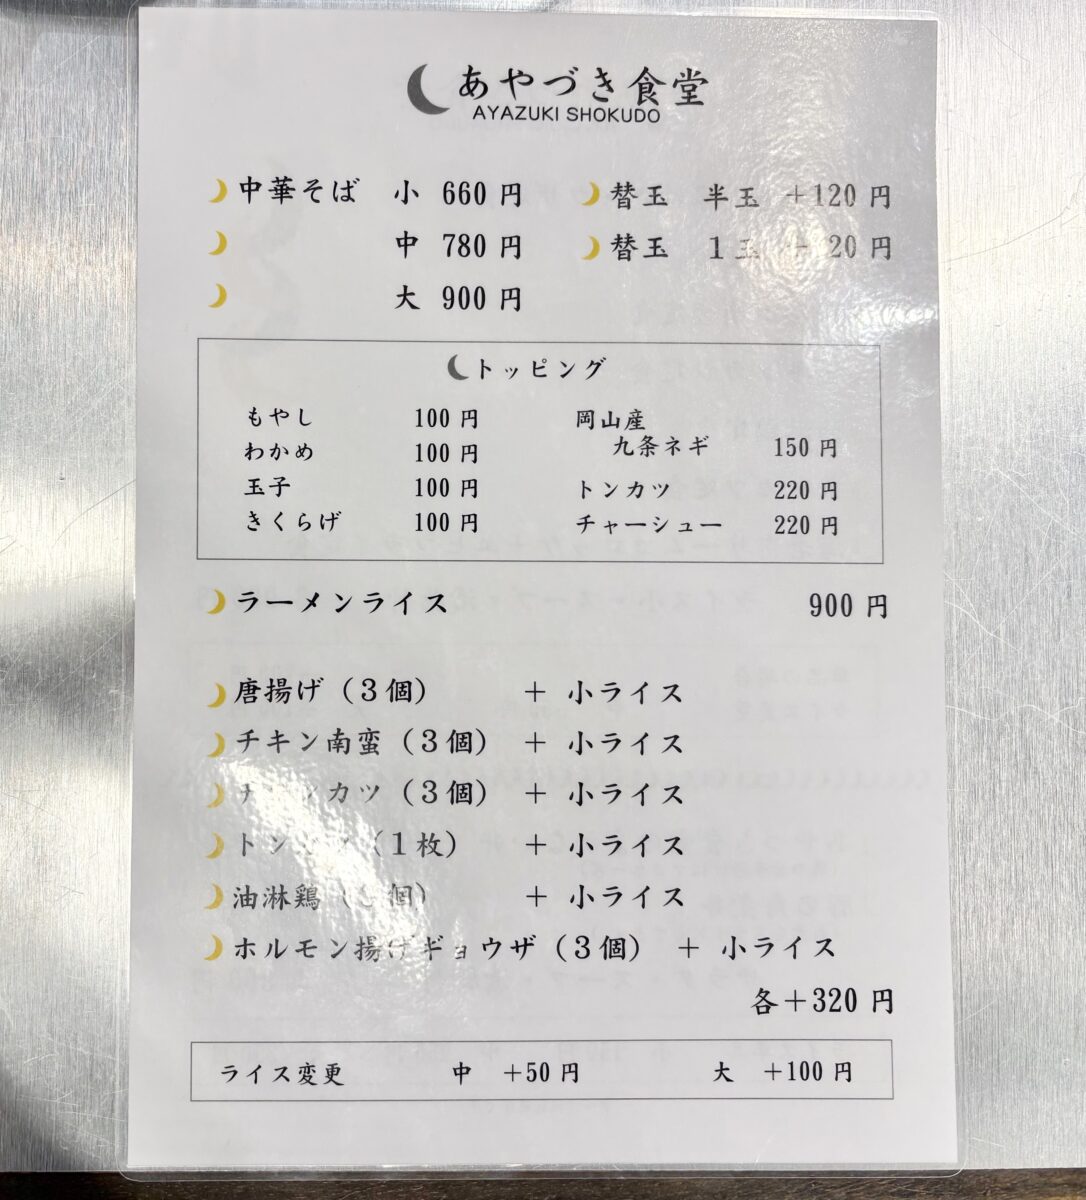 あやづき食堂
AYAZUKI SHOKUDO
中華そば 小 660 円
中 780 円
大 900 円
替玉 半玉 +120 円
替玉 1玉 + 20 円
トッピング
もやし 100 円
わかめ 100 円
玉子 100 円
きくらげ 100 円
岡山産
九条ネギ 150 円
トンカツ 220 円
チャーシュー 220 円
ラーメンライス 900 円
唐揚げ(3個) + 小ライス
チキン南蛮(3個) + 小ライス
カツ(3個) + 小ライス
トンカツ(1枚) + 小ライス
油淋鶏( 個) + 小ライス
ホルモン揚げギョウザ(3個) + 小ライス
各+320 円
ライス変更 中 +50 円 大 +100 円